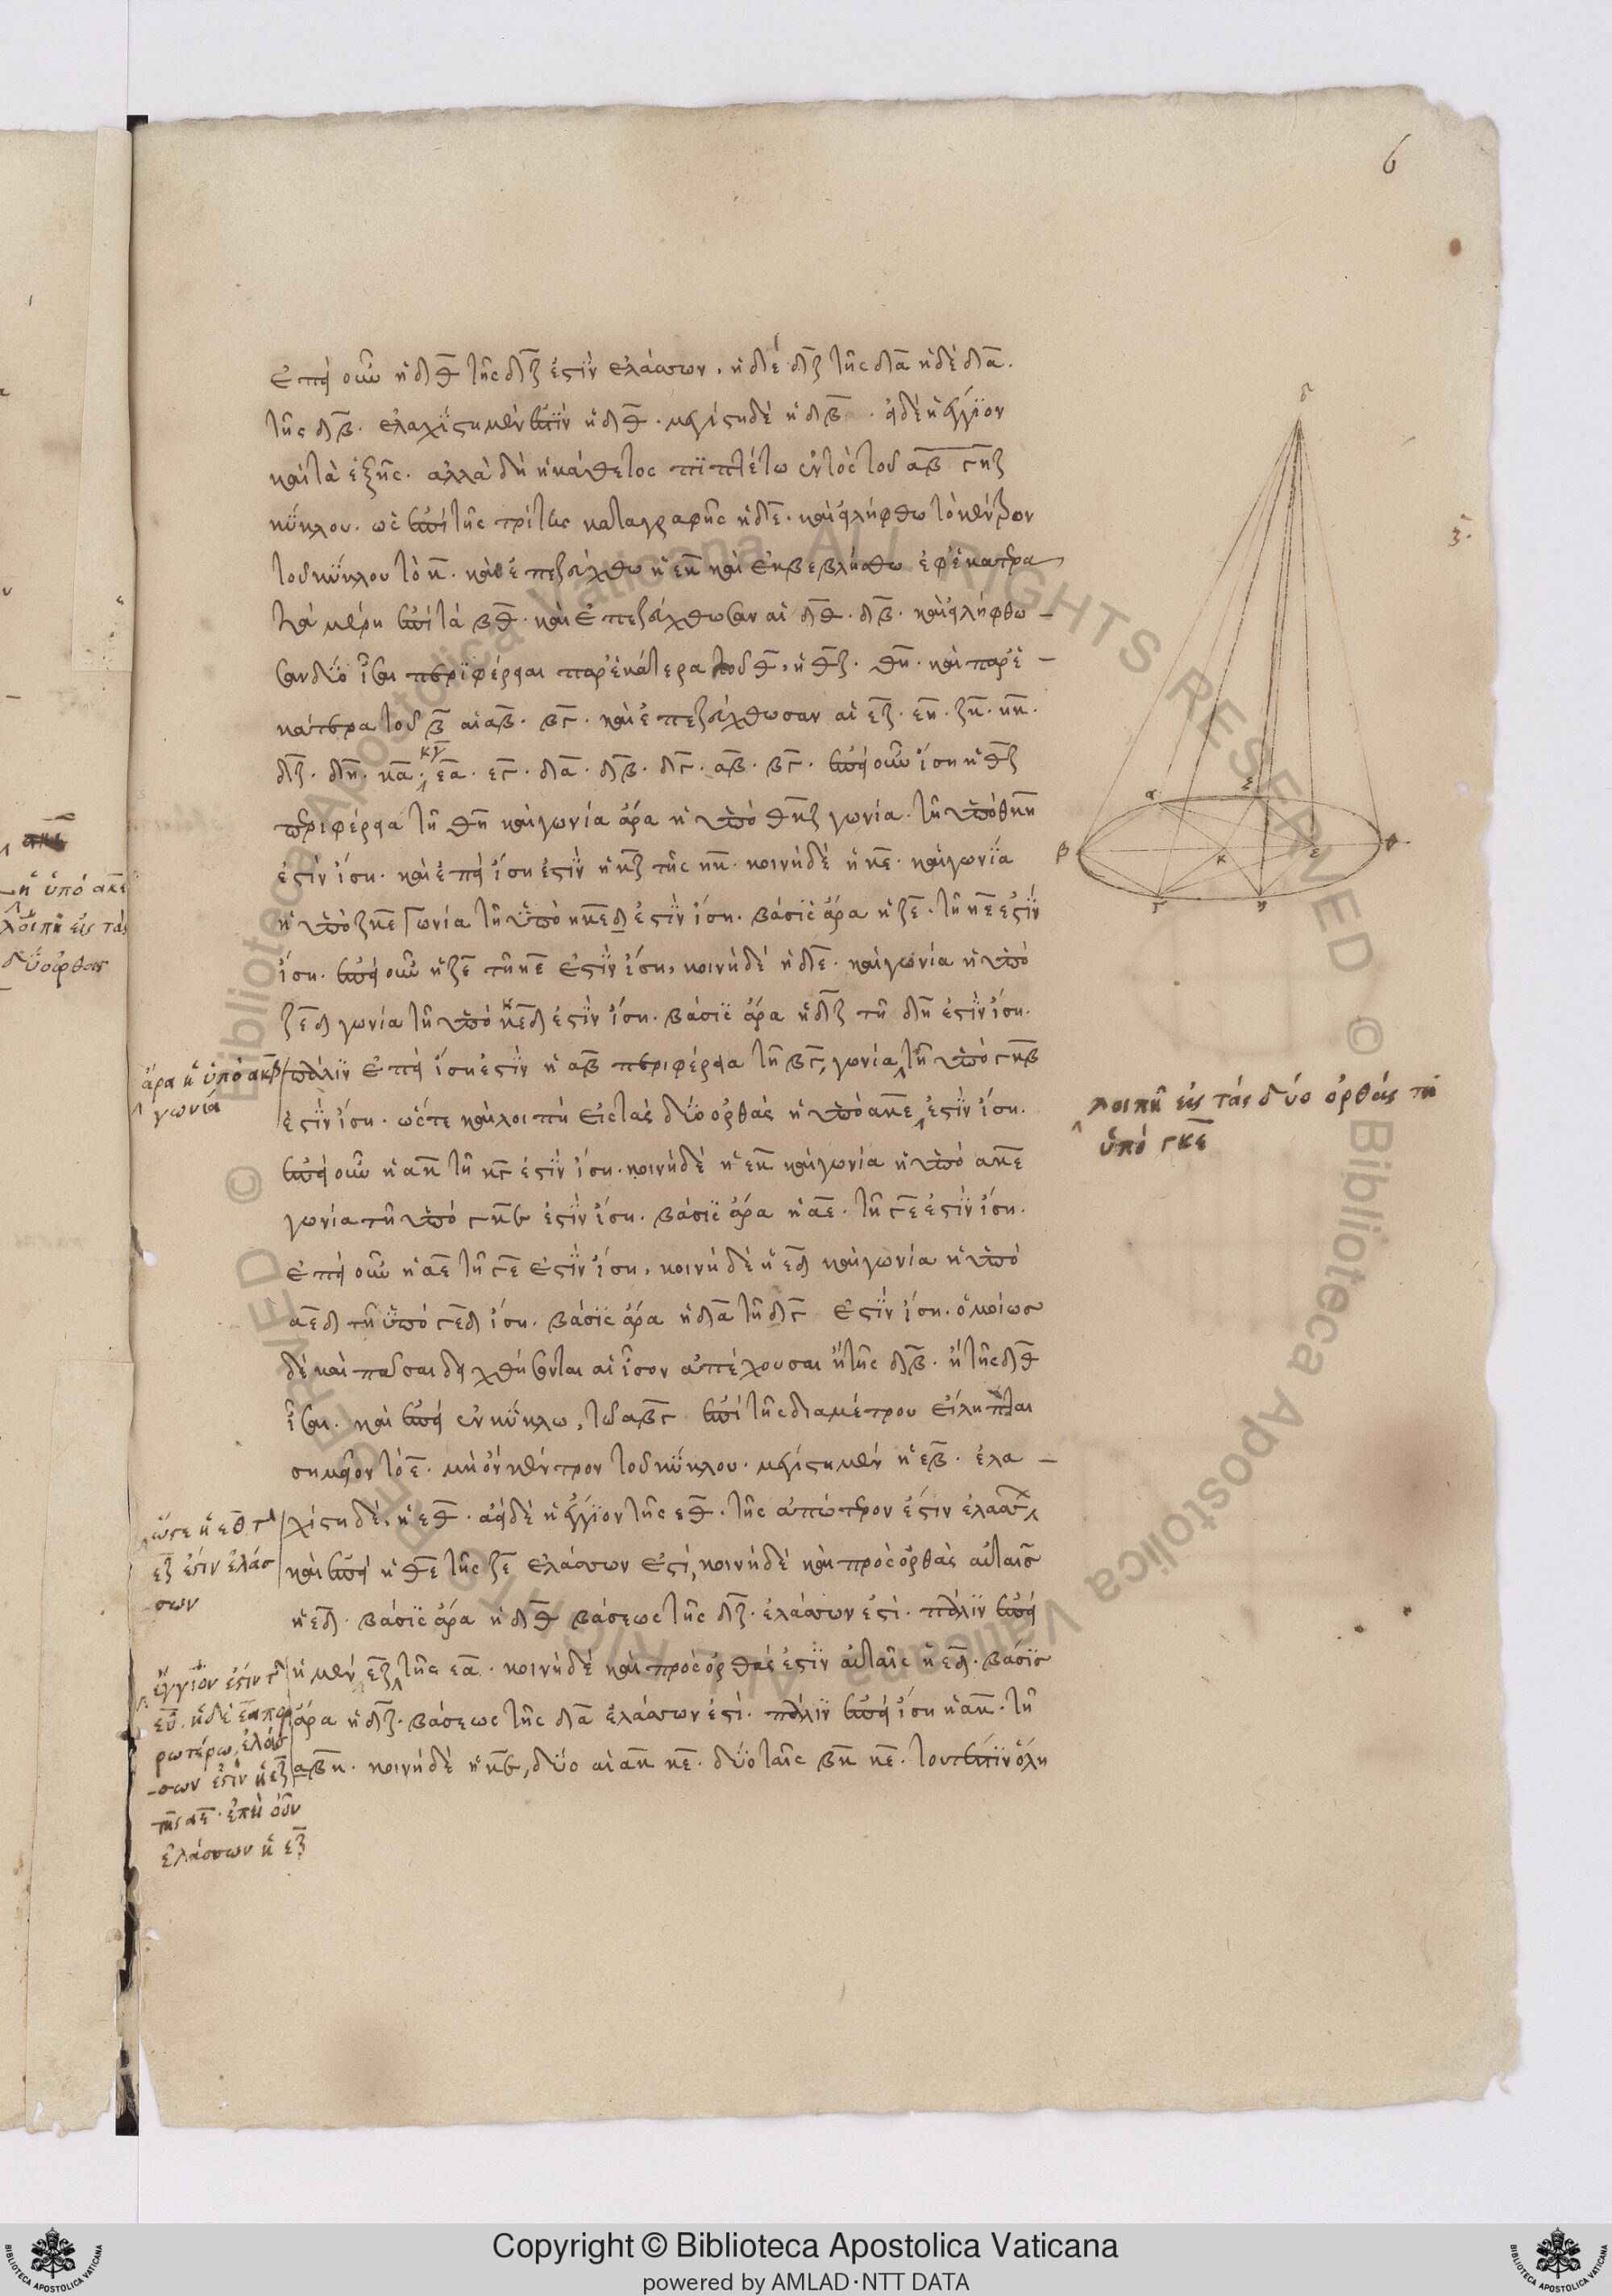 6
ἐπεὶ οὖν ἡ δθ τῆς δζ ἐστὶν ἐλάσσων. ἡ δὲ δζ τῆς δα ἡ δὲ δα.
τῆς δβ. ἐλαχίστη μέν ἐστιν ἡ δθ. μεγίστη δὲ ἡ δβ. ἀεὶ δὲ ἡ ἔγγιον
καὶ τὰ ἑξῆς. ἀλλὰ δὴ ἡ κάθετος πιπτέτω ἐντὸς τοῦ αβ γηζ
κύκλου. ὡς ἐπὶ τῆς τρίτης καταγραφῆς ἡ δε. καὶ εἰλήφθω τὸ κέντρον
τοῦ κύκλου τὸ κ. καὶ ἐπεζεύχθω ἡ εκ καὶ ἐκβεβλήσθω ἐφ' ἑκάτερα
τὰ μέρη ἐπὶ τὰ βθ. καὶ ἐπεζεύχθωσαν αἱ δθ. δβ. καὶ εἰλήφθω
σαν δύο ἴσαι περιφέρειαι παρ' ἑκάτερα τοῦ θ, ἡ θζ. θη. καὶ παρ' ἑ
κάτερα τοῦ β αἱ αβ. βγ. καὶ ἐπεζεύχθωσαν αἱ εζ. εη. ζκ. κη.
δζ. δη. κα. κγ εα. εγ. δα. δβ. δγ. αβ. βγ. ἐπεὶ οὖν ἴση ἡ θζ
περιφέρεια τῇ θη καὶ γωνία ἄρα ἡ ὑπὸ θκζ γωνία. τῇ ὑπὸ θκη
ἐστὶν ἴση. καὶ ἐπεὶ ἴση ἐστὶν ἡ κζ τῆς κη. κοινὴ δὲ ἡ κε. καὶ γωνία
ἡ ὑπὸ ζκε γωνία τῇ ὑπὸ ηκεδ ἐστὶν ἴση. βάσις ἄρα ἡ ζε. τῇ ηε ἐστὶν
ἴση. ἐπεὶ οὖν ἡ ζε τῇ ηε ἐστὶν ἴση, κοινὴ δὲ ἡ δε. καὶ γωνία ἡ ὑπὸ
ζεδ γωνία τῇ ὑπὸ ηεδ ἐστὶν ἴση. βάσις ἄρα ἡ δζ τῇ δη ἐστὶν ἴση.
πάλιν ἐπεὶ ἴση ἐστὶν ἡ αβ περιφέρεια τῇ βγ, γωνία τῇ ὑπὸ γκβ
ἄρα ἡ ὑπὸ ακβ
γωνία
ἐστὶν ἴση. ὥστε καὶ λοιπὴ εἰς τὰς δύο ὀρθὰς ἡ ὑπὸ ακε ἐστὶν ἴση.
λοιπῇ εἰς τὰς δύο ὀρθὰς τῇ
ὑπὸ γκε
ἐπεὶ οὖν ἡ ακ τῇ κγ ἐστὶν ἴση. κοινὴ δὲ ἡ εκ καὶ γωνία ἡ ὑπὸ ακε
γωνία τῇ ὑπὸ γκε ἐστὶν ἴση. βάσις ἄρα ἡ αε. τῇ γε ἐστὶν ἴση.
ἐπεὶ οὖν ἡ αε τῇ γε ἐστὶν ἴση, κοινὴ δὲ ἡ εδ καὶ γωνία ἡ ὑπὸ
αεδ τῇ ὑπὸ γεδ ἴση. βάσις ἄρα ἡ δα τῇ δγ ἐστὶν ἴση. ὁμοίως
δὲ καὶ πᾶσαι δειχθήσονται αἱ ἴσον ἀπέχουσαι ἢ τῆς δβ. ἢ τῆς δθ
ἴσαι. καὶ ἐπεὶ ἐν κύκλῳ, τῷ αβγ ἐπὶ τῆς διαμέτρου εἴληπται
σημεῖον τὸ ε. μὴ ὂν κέντρον τοῦ κύκλου. μεγίστη μὲν ἡ εβ. ἐλα
χίστη δὲ, ἡ εθ. ἀεὶ δὲ ἡ ἔγγιον τῆς εθ. τῆς ἀπώτερον ἐστὶν ἐλάσσων
ὥστε ἡ εθ τῆς
εζ ἐστὶν ἐλάσ
σων
καὶ ἐπεὶ ἡ θε τῆς ζε ἐλάσσων ἐστὶ, κοινὴ δὲ καὶ πρὸς ὀρθὰς αὐταῖς
ἡ εδ. βάσις ἄρα ἡ δθ βάσεως τῆς δζ. ἐλάσσων ἐστὶ. πάλιν ἐπεὶ
ἡ μὲν εζ τῆς εα. κοινὴ δὲ καὶ πρὸς ὀρθάς ἐστὶν αὐταῖς ἡ εδ. βάσις
ἔγγιον ἐστὶν τῆς
εθ. ἡ δὲ εα πορ
ρωτέρω, ἐλάσ
σων ἐστὶν ἡ εζ
τῆς αε. ἐπεὶ οὖν
ἐλάσσων ἡ εζ
ἄρα ἡ δζ. βάσεως τῆς δα ἐλάσσων ἐστὶ. πάλιν ἐπεὶ ἴση ἡ ακ. τῇ
βκ. κοινὴ δὲ ἡ κε, δύο αἱ ακ κε. δύο ταῖς βκ κε. τουτέστιν ὅλῃ
δ
α ζ
β κ ε θ
γ η
ἡ ὑπὸ ακε
λοιπῇ εἰς τὰς
δύο ὀρθὰς
Copyright © Biblioteca Apostolica Vaticana
powered by AMLAD·NTT DATA